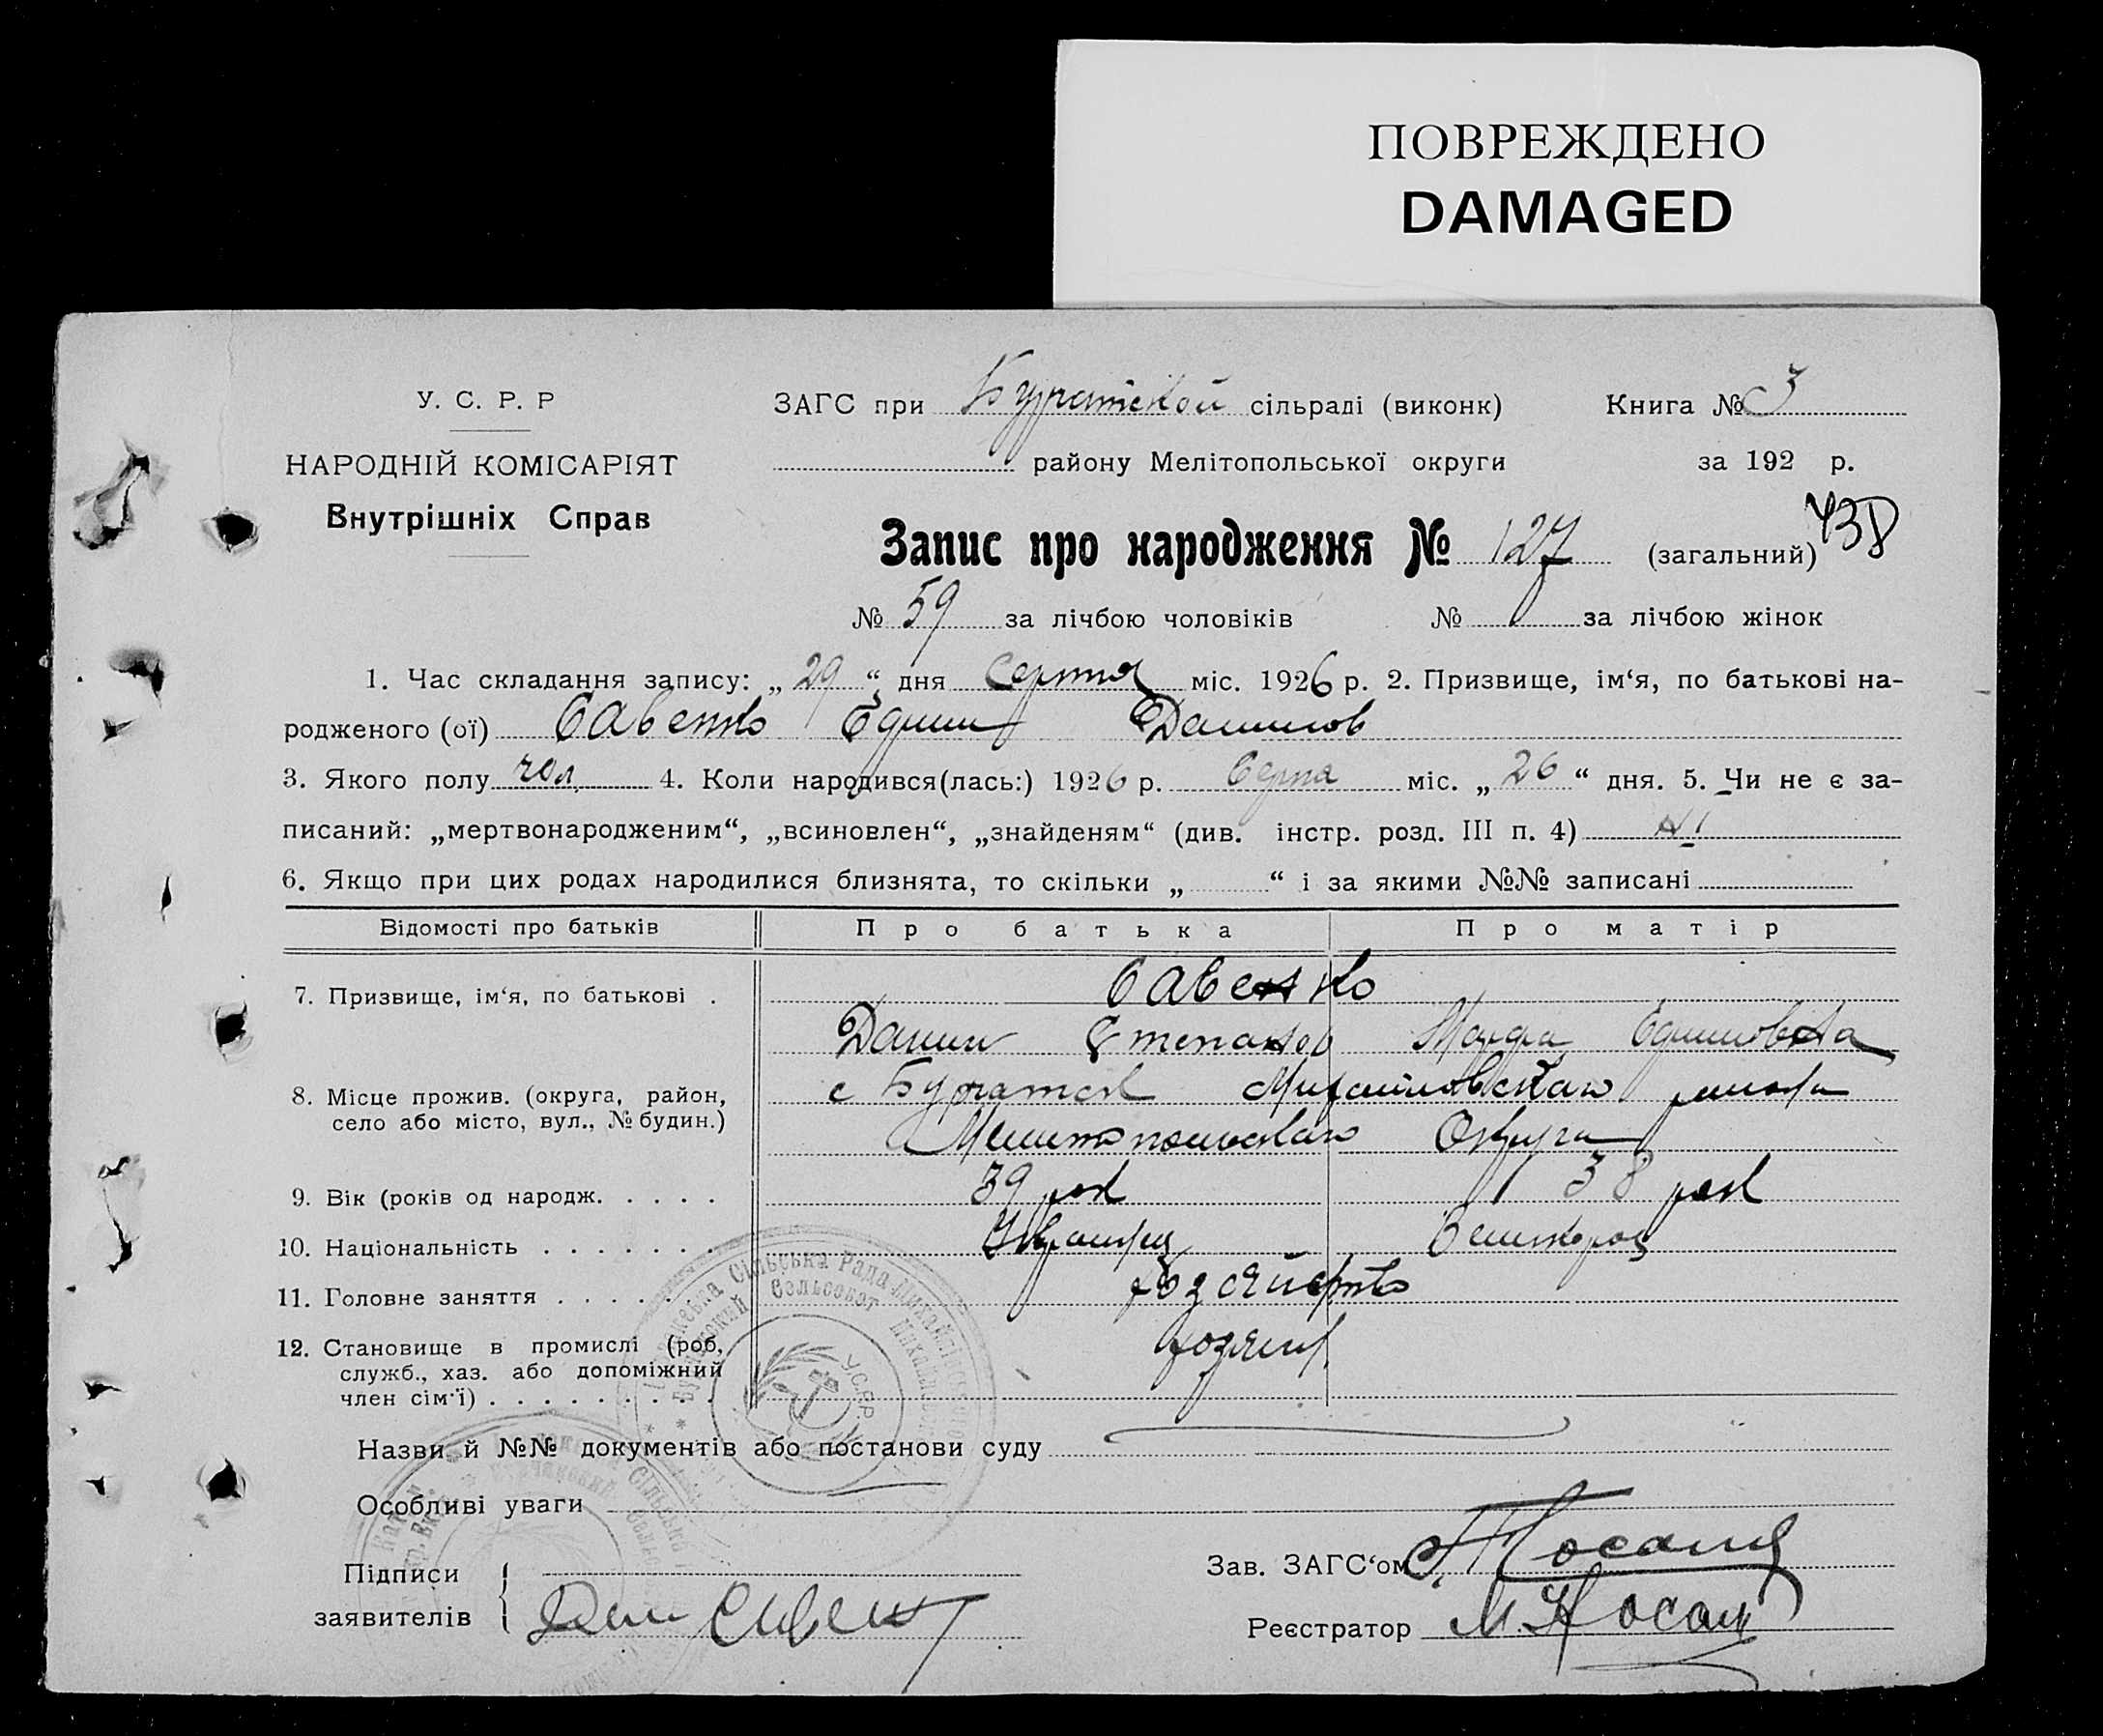 ПОВРЕЖДЕНО
DAMAGED
У. С. Р. Р
НАРОДНІЙ КОМІСАРІЯТ
Внутрішніх Справ
ЗАГС при сільраді (виконк) Книга № 3
району Мелітопольської округи за 192 р.
Запис про народження № 127 (загальний)
№ 59 за лічбою чоловіків № за лічбою жінок
1. Час складання запису: „ 29 “ дня Серпня міс. 1926 р. 2. Призвище, ім‘я, по батькові на-
родженого (ої) Савенко Данилов
3. Якого полу чол. 4. Коли народився(лась:) 1926 р. Серпня міс. „ 26 “ дня. 5. Чи не є за-
писаний: „мертвонародженим“, „всиновлен“, „знайденям“ (див. інстр. розд. III п. 4) Ні
6. Якщо при цих родах народилися близнята, то скільки „ “ і за якими №№ записані
Відомості про батьків Про батька Про матір
7. Призвище, ім‘я, по батькові . Савенко
Данил Степанов Марфа
8. Місце прожив. (округа, район,
село або місто, вул., № будин.)
с Михайловскаго района
Мелитопольскаго Округа
9. Вік (років од народж. . . . . 39 рок 38 рок
10. Національність . . . . . . . Украінец
11. Головне заняття . . . . . . хозяйство
12. Становище в промислі (роб,
служб., хаз. або допоміжний
член сім‘ї) . . . . . . . . .
хозяін
Назви й №№ документів або постанови суду
Особливі уваги
Підписи
заявителів
Дан Савенко
Зав. ЗАГС‘ом
Реєстратор М. Носац
У.С.Р.Р.